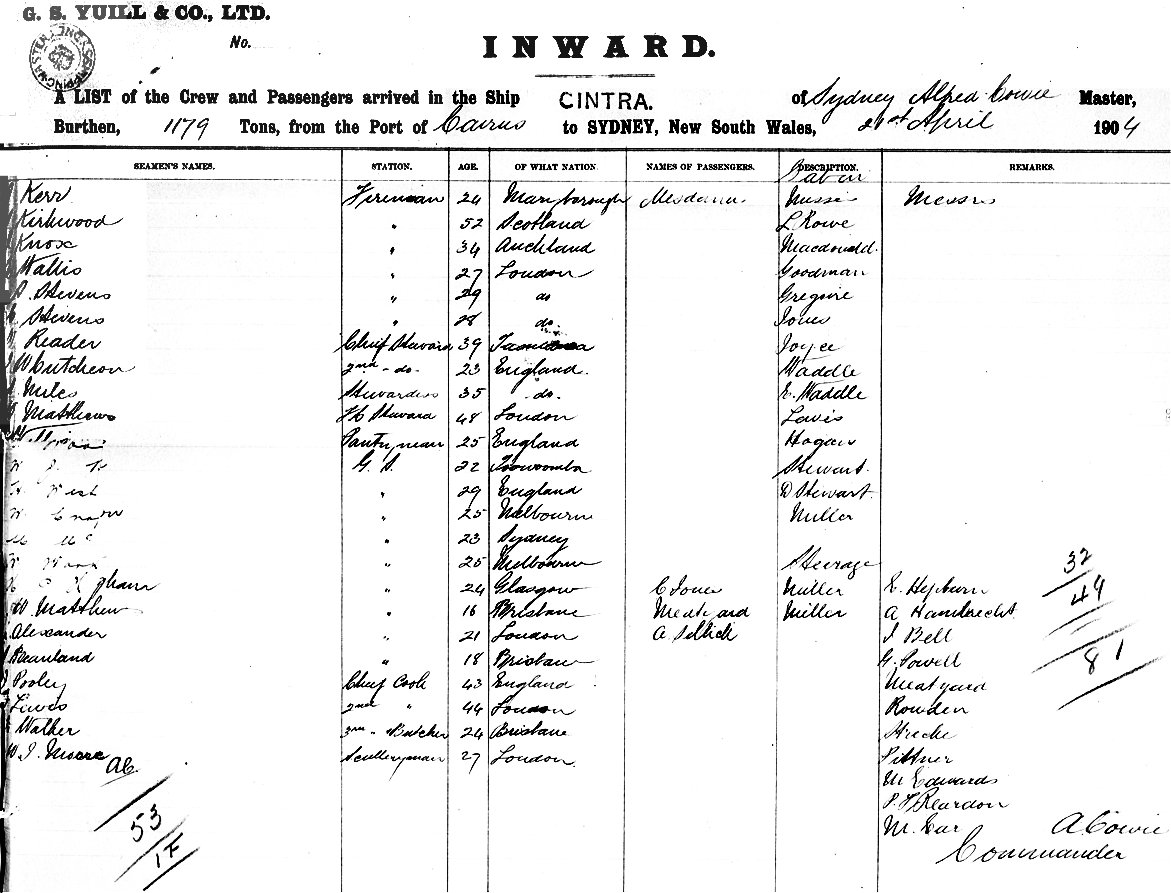 G. S. YUILL & CO., LTD.
No.
INWARD.
A LIST of the Crew and Passengers arrived in the Ship CINTRA. of Sydney Alfred Cowie Master,
Burthen, 1179 Tons, from the Port of Cairns to SYDNEY, New South Wales, 21st April 1904
SEAMEN'S NAMES. STATION. AGE. OF WHAT NATION. NAMES OF PASSENGERS. DESCRIPTION. REMARKS.
Kerr Fireman 24 Maryborough Mesdames Misses Messrs
Kirkwood " 52 Scotland L Rowe
Knox " 34 Auckland Macdonald
Wallis " 27 London Goodman
Stevens " 29 do Gregoire
Stevens " 28 do. Jones
Reader Chief Steward 39 Joyce
McCutcheon 2nd - do. 23 England. Waddle
Miles Stewardess 35 do. E. Waddle
Matthews F.C Steward 48 London Lewis
Pantryman 25 England Hogan
G. S. 22 Toowoomba Stewart.
West " 29 England D Stewart.
" 25 Melbourne Miller
" 23 Sydney
" 25 Melbourne Steerage
" 24 Glasgow C Jones Miller E. Hepburn
W. Matthews " 16 Brisbane Meatyard Miller A Hambrecht.
Alexander " 21 London A. Sellick J Bell
Beanland " 18 Brisbane G. Powell
Pooley Chief Cook 43 England Meatyard
Lewis 2nd " 44 London Rowden
Walker 3rd - Butcher 24 Brisbane
W. J. Moore Sculleryman 27 London Pittner
AC. M Edwards
P. F. Reardon
A Cowie
Commander
32
49
81
53
17